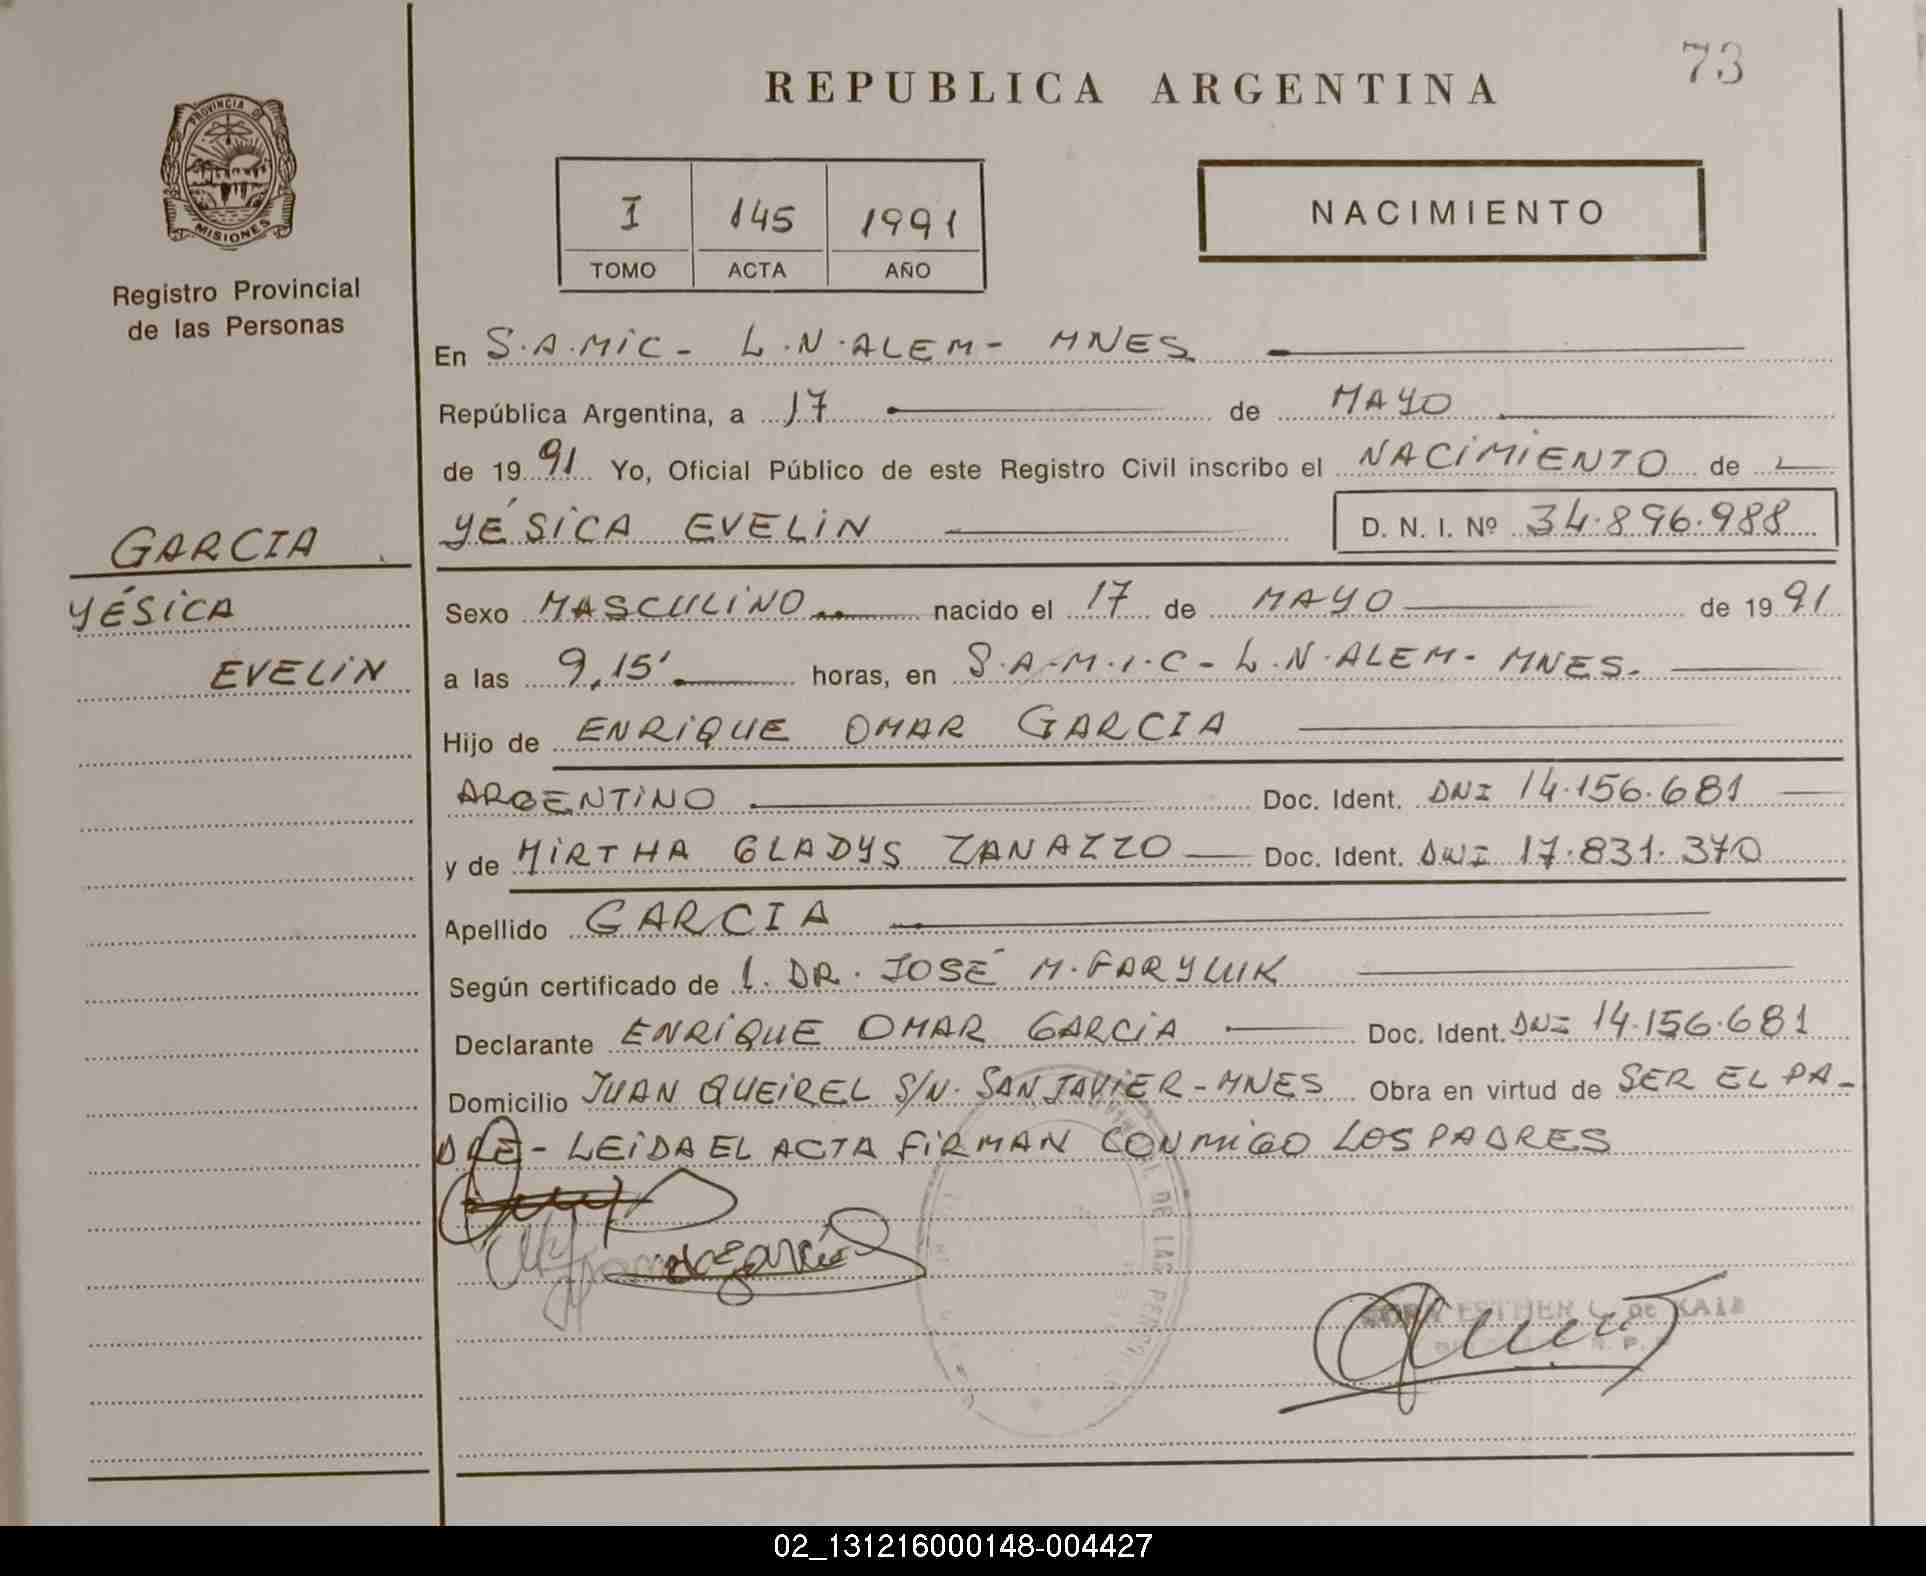 73
REPUBLICA ARGENTINA
PROVINCIA DE
MISIONES
Registro Provincial
de las Personas
I 145 1991
TOMO ACTA AÑO
NACIMIENTO
En S.A.MIC- L.N.ALEM- MNES
República Argentina, a 17 de MAYO
de 1991 Yo, Oficial Público de este Registro Civil inscribo el NACIMIENTO de
YÉSICA EVELIN D. N. I. Nº 34.896.988
GARCIA
YÉSICA
EVELIN
Sexo MASCULINO nacido el 17 de MAYO de 1991
a las 9,15' horas, en S.A.M.I.C- L.N.ALEM- MNES.
Hijo de ENRIQUE OMAR GARCIA
ARGENTINO Doc. Ident. DNI 14.156.681
y de MIRTHA GLADYS ZANAZZO Doc. Ident. DNI 17.831.370
Apellido GARCIA
Según certificado de 1. DR. JOSÉ M. FARYLUK
Declarante ENRIQUE OMAR GARCIA Doc. Ident. DNI 14.156.681
Domicilio JUAN QUEIREL S/N. SAN JAVIER-MNES Obra en virtud de SER EL PA-
DRE- LEIDA EL ACTA FIRMAN CONMIGO LOS PADRES
DE LAS
ESTHER
02_131216000148-004427